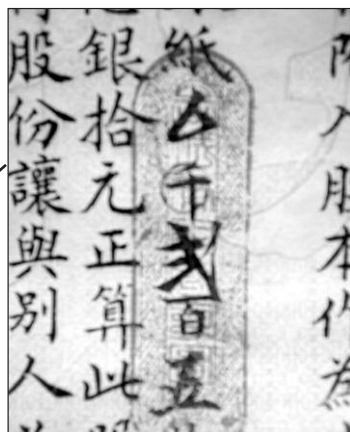 入股本作為
紙千弍百五
銀拾元正算此
股份讓與別人